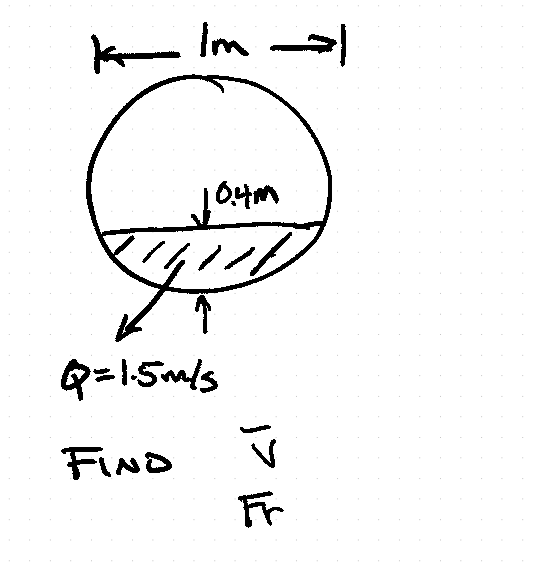 1m
0.4m
Q=1.5m/s
FIND V̅
Fr